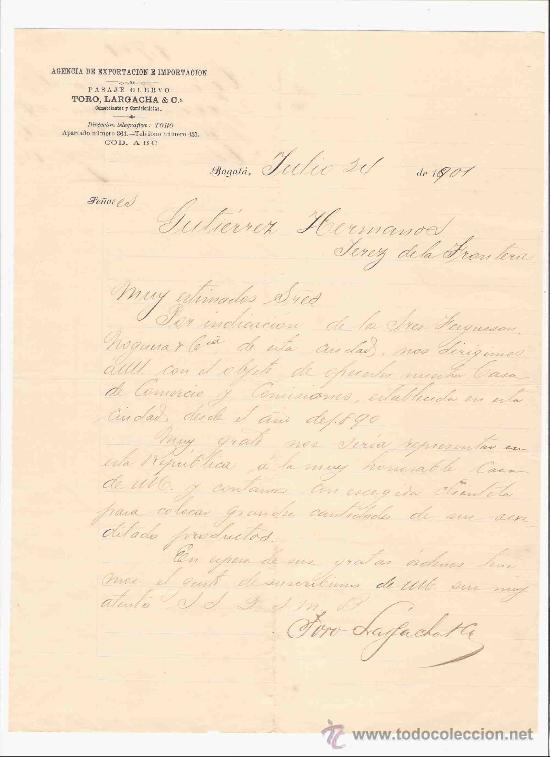 AGENCIA DE EXPORTACION E IMPORTACION
PASAJE CUERVO
TORO, LARGACHA & C.a
Comerciantes y Comisionistas.
Dirección telegráfica: TORO
Apartado número 363.—Teléfono número 453.
COD. A B C
Bogotá, Julio 24 de 1901
Señores
Gutiérrez Hermanos
Jerez de la Frontera
Muy estimados Sres
Por indicacion de los Sres Ferguson,
Noguera & Cia de esta ciudad, nos dirigimos
á UU. con el objeto de ofrecerles nuestra Casa
de Comercio y Comisiones, establecida en esta
ciudad desde el año de 1890
Muy grato nos seria representar en
esta República á la muy honorable Casa
de UU. y contamos con escogida clientela
para colocar grandes cantidades de sus acre
ditados productos.
En espera de sus gratas órdenes tene
mos el gusto de suscribirnos de UU. sus muy
atentos S. S. Q. S. M. B.
Toro Largacha & Ca
todocoleccion
www.todocoleccion.net